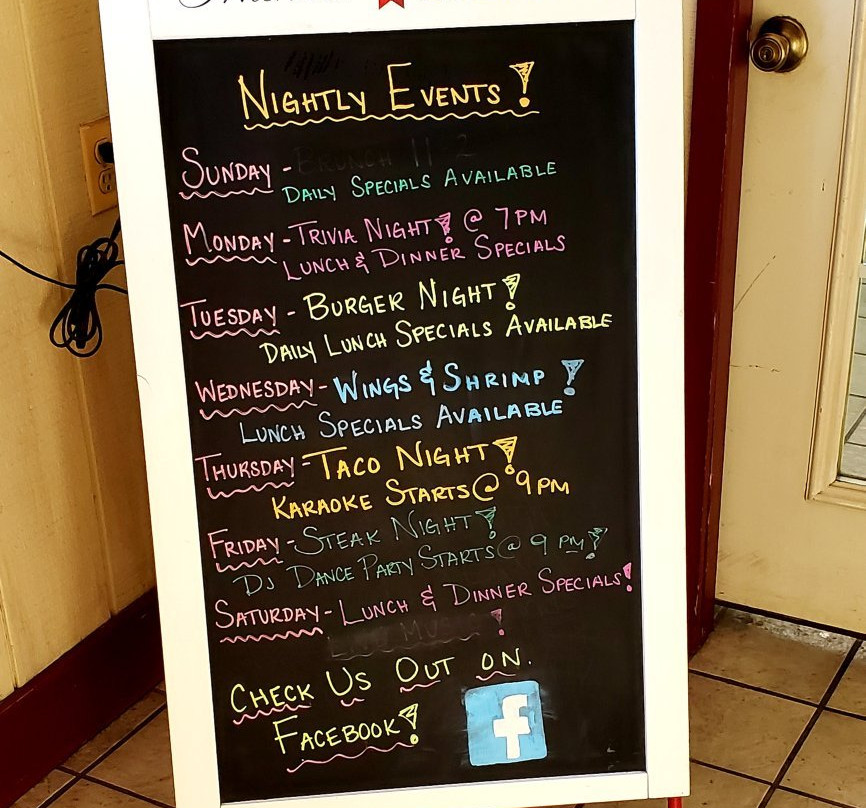 NIGHTLY EVENTS!
SUNDAY - BRUNCH 11 2
DAILY SPECIALS AVAILABLE
MONDAY - TRIVIA NIGHT! @ 7PM
LUNCH & DINNER SPECIALS
TUESDAY - BURGER NIGHT!
DAILY LUNCH SPECIALS AVAILABLE
WEDNESDAY - WINGS & SHRIMP!
LUNCH SPECIALS AVAILABLE
THURSDAY - TACO NIGHT!
KARAOKE STARTS @ 9PM
FRIDAY - STEAK NIGHT!
DJ DANCE PARTY STARTS @ 9 PM!
SATURDAY - LUNCH & DINNER SPECIALS!
MUSIC!
CHECK US OUT ON.
FACEBOOK!
f